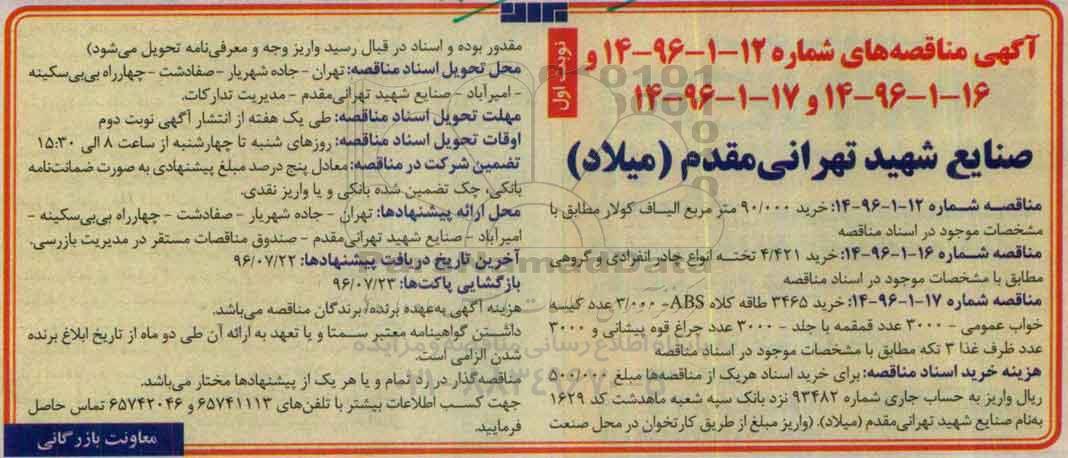 نوبت اول
آگهی مناقصه‌های شماره ۱۲-۱-۹۶-۱۴ و
۱۶-۱-۹۶-۱۴ و ۱۷-۱-۹۶-۱۴
صنایع شهید تهرانی‌مقدم (میلاد)
مناقصه شماره ۱۲-۱-۹۶-۱۴: خرید ۹۰/۰۰۰ متر مربع الیاف کولار مطابق با
مشخصات موجود در اسناد مناقصه
مناقصه شماره ۱۶-۱-۹۶-۱۴: خرید ۴/۴۲۱ تخته انواع چادر انفرادی و گروهی
مطابق با مشخصات موجود در اسناد مناقصه
مناقصه شماره ۱۷-۱-۹۶-۱۴: خرید ۳۴۶۵ طاقه کلاه ABS- ۳/۰۰۰ عدد کیسه
خواب عمومی - ۳۰۰۰ عدد قمقمه با جلد - ۳۰۰۰ عدد چراغ قوه پیشانی و ۳۰۰۰
عدد ظرف غذا ۳ تکه مطابق با مشخصات موجود در اسناد مناقصه
هزینه خرید اسناد مناقصه: برای خرید اسناد هریک از مناقصه‌ها مبلغ ۵۰۰/۰۰۰
ریال واریز به حساب جاری شماره ۹۳۴۸۲ نزد بانک سپه شعبه ماهدشت کد ۱۶۲۹
به‌نام صنایع شهید تهرانی‌مقدم (میلاد). (واریز مبلغ از طریق کارتخوان در محل صنعت
مقدور بوده و اسناد در قبال رسید واریز وجه و معرفی‌نامه تحویل می‌شود)
محل تحویل اسناد مناقصه: تهران - جاده شهریار - صفادشت - چهارراه بی‌بی‌سکینه
- امیرآباد - صنایع شهید تهرانی‌مقدم - مدیریت تدارکات.
مهلت تحویل اسناد مناقصه: طی یک هفته از انتشار آگهی نوبت دوم
اوقات تحویل اسناد مناقصه: روزهای شنبه تا چهارشنبه از ساعت ۸ الی ۱۵:۳۰
تضمین شرکت در مناقصه: معادل پنج درصد مبلغ پیشنهادی به صورت ضمانت‌نامه
بانکی، چک تضمین شده بانکی و یا واریز نقدی.
محل ارائه پیشنهادها: تهران - جاده شهریار - صفادشت - چهارراه بی‌بی‌سکینه -
امیرآباد - صنایع شهید تهرانی‌مقدم - صندوق مناقصات مستقر در مدیریت بازرسی.
آخرین تاریخ دریافت پیشنهادها: ۹۶/۰۷/۲۲
بازگشایی پاکت‌ها: ۹۶/۰۷/۲۳
هزینه آگهی به‌عهده برنده/ برندگان مناقصه می‌باشد.
داشتن گواهینامه معتبر سمتا و یا تعهد به ارائه آن طی دو ماه از تاریخ ابلاغ برنده
شدن الزامی است.
مناقصه‌گذار در رد تمام و یا هر یک از پیشنهادها مختار می‌باشد.
جهت کسب اطلاعات بیشتر با تلفن‌های ۶۵۷۴۱۱۱۳ و ۶۵۷۴۲۰۴۶ تماس حاصل
فرمایید.
معاونت بازرگانی